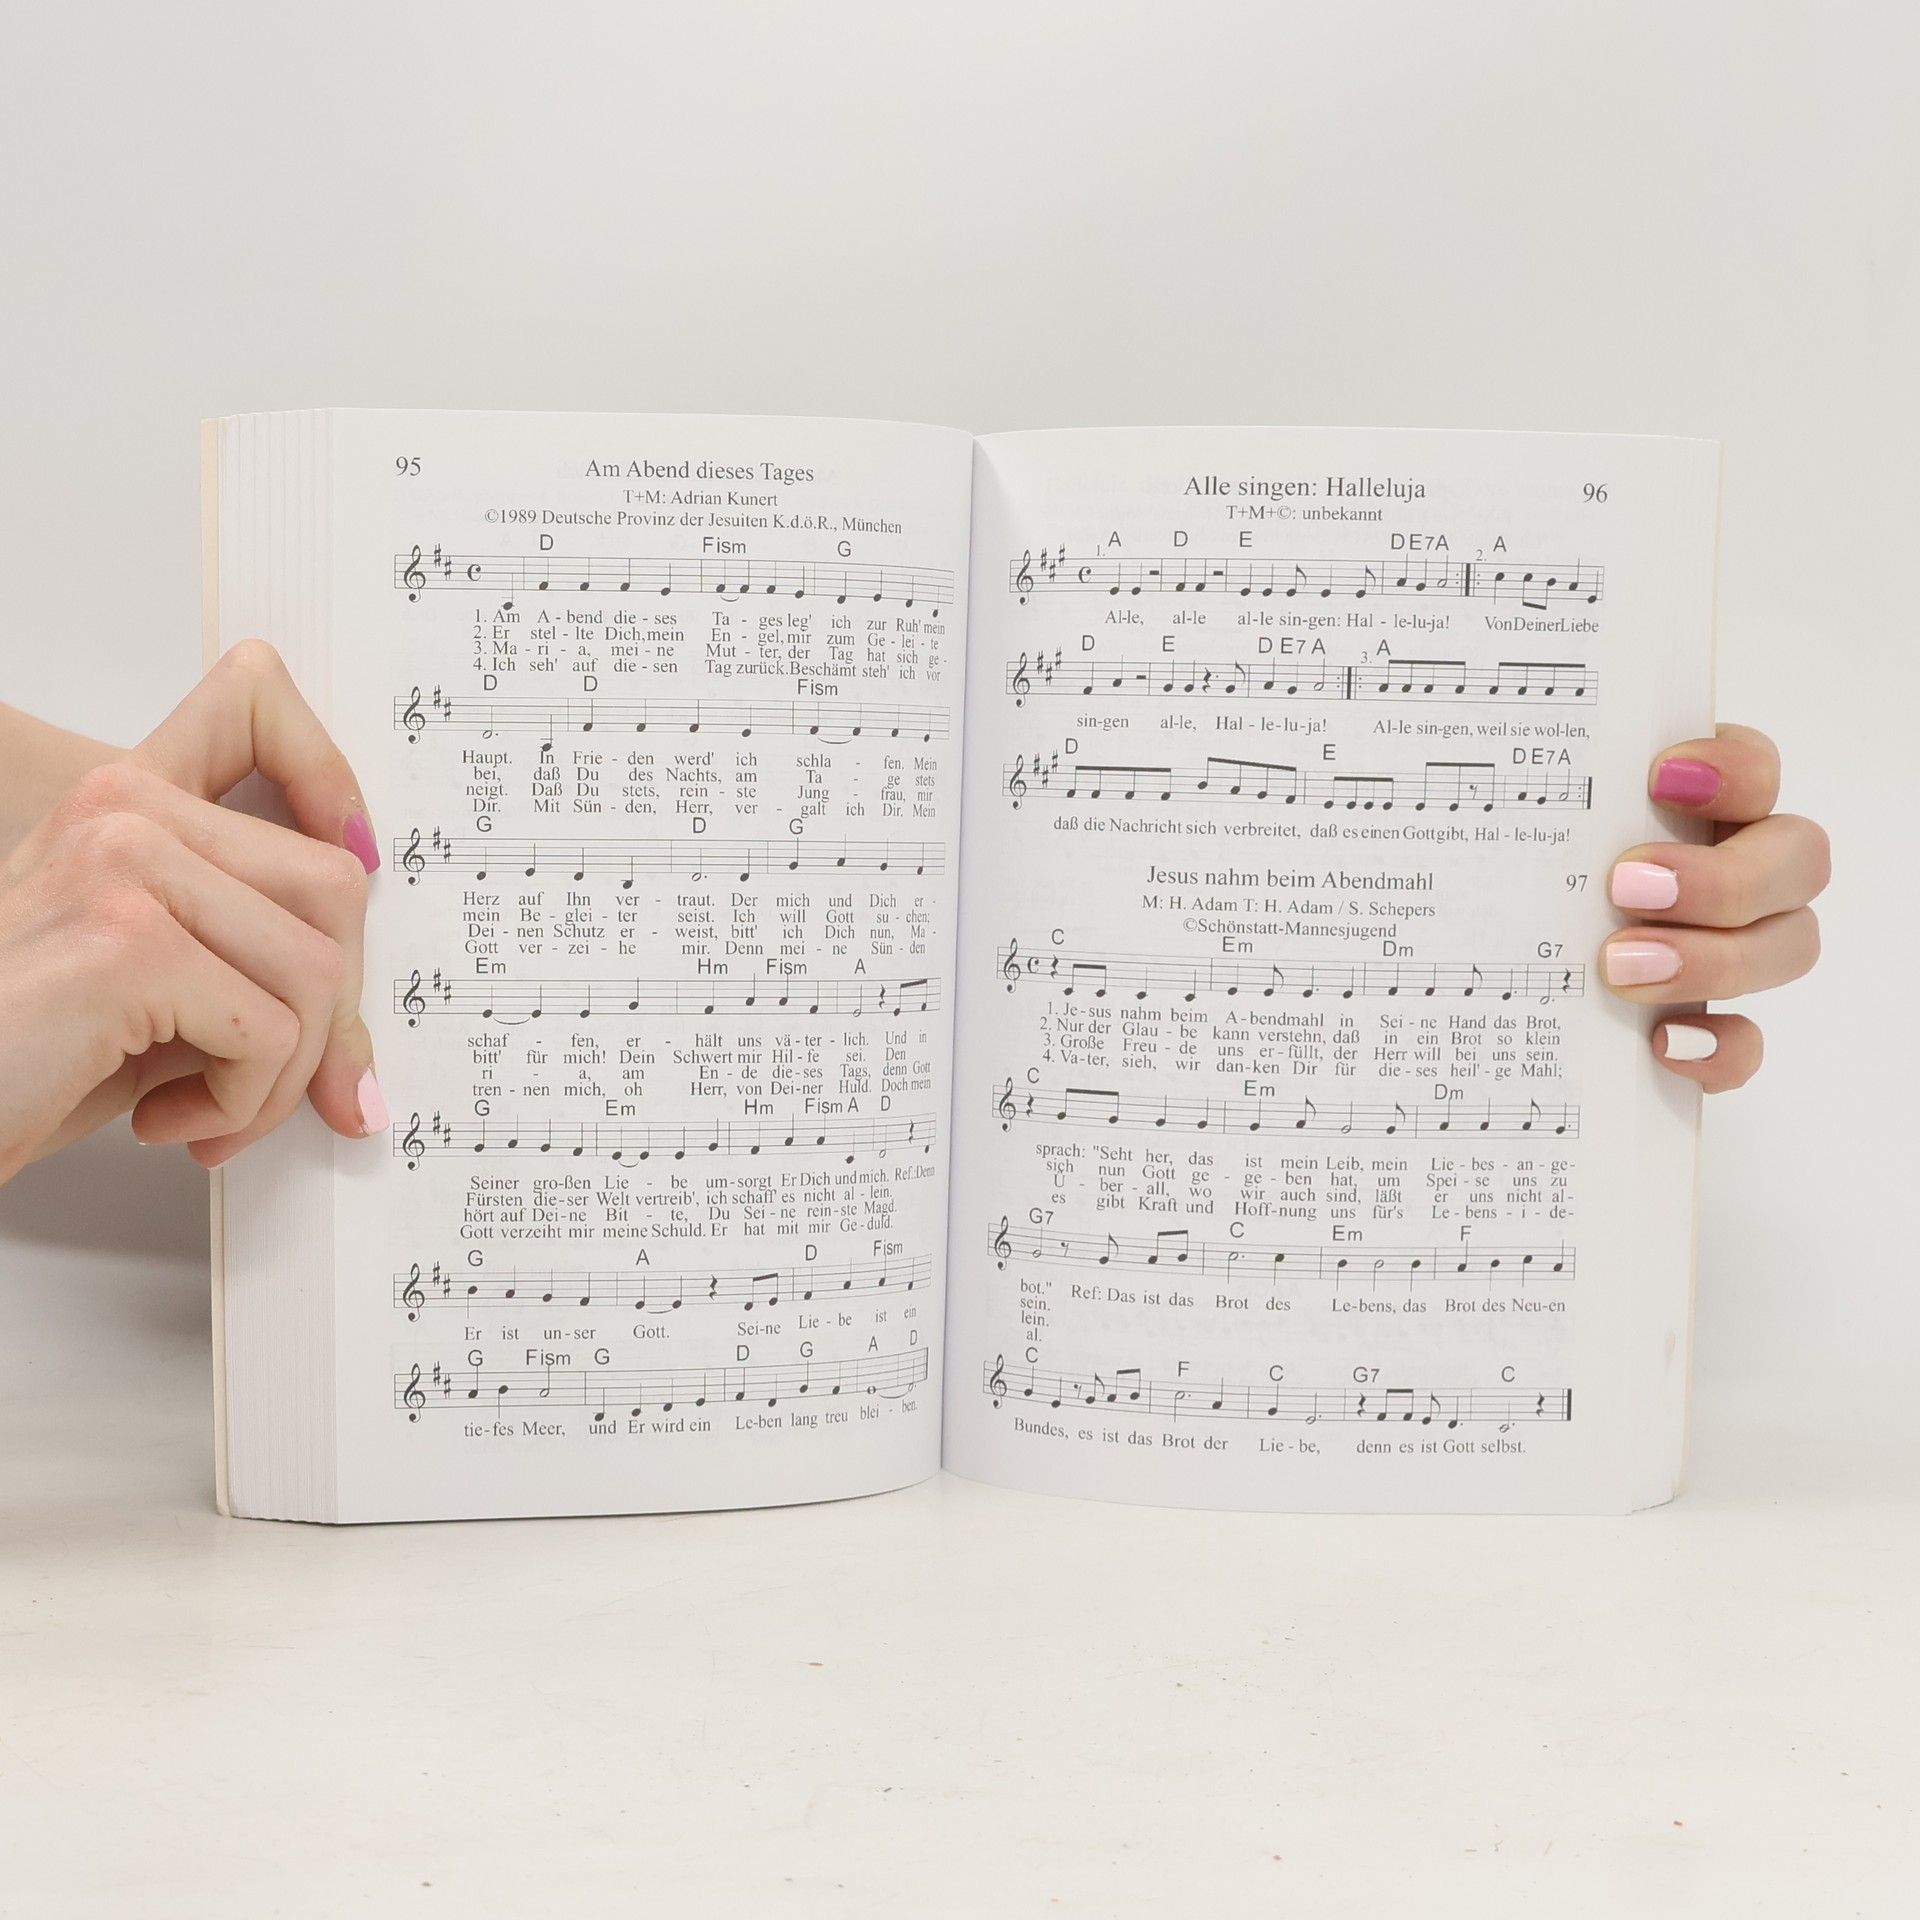 95
Am Abend dieses Tages
T+M: Adrian Kunert
©1989 Deutsche Provinz der Jesuiten K.d.ö.R., München
D Fism G
1. Am A - bend die - ses Ta - ges leg' ich zur Ruh' mein
2. Er stel - lte Dich, mein En - gel, mir zum Ge - lei - te
3. Ma - ri - a, mei - ne Mut - ter, der Tag hat sich ge -
4. Ich seh' auf die - sen Tag zurück. Beschämt steh' ich vor
D D Fism
Haupt. In Frie - den werd' ich schla - fen. Mein
bei, daß Du des Nachts, am Ta - ge stets
neigt. Daß Du stets, rein - ste Jung - frau, mir
Dir. Mit Sün - den, Herr, ver - galt ich Dir. Mein
G D G
Herz auf Ihn ver - traut. Der mich und Dich er -
mein Be - glei - ter seist. Ich will Gott su - chen;
Dei - nen Schutz er - weist, bitt' ich Dich nun, Ma -
Gott ver - zei - he mir. Denn mei - ne Sün - den
Em Hm Fism A
schaf - fen, er - hält uns vä - ter - lich. Und in
bitt' für mich! Dein Schwert mir Hil - fe sei. Den
ri - a, am En - de die - ses Tags, denn Gott
tren - nen mich, oh Herr, von Dei - ner Huld. Doch mein
G Em Hm Fism A D
Seiner gro-ßen Lie - be um-sorgt Er Dich und mich. Ref.:Denn
Fürsten die-ser Welt vertreib', ich schaff' es nicht al - lein.
hört auf Dei-ne Bit - te, Du Sei - ne rein-ste Magd.
Gott verzeiht mir meine Schuld. Er hat mit mir Ge - duld.
G A D Fism
Er ist un-ser Gott. Sei-ne Lie - be ist ein
G Fism G D G A D
tie-fes Meer, und Er wird ein Le-ben lang treu blei - ben.
Alle singen: Halleluja 96
T+M+©: unbekannt
1. A D E D E7 A 2. A
Al-le, al-le al-le sin-gen: Hal - le-lu-ja! Von Deiner Liebe
D E D E7 A 3. A
sin-gen al-le, Hal - le-lu-ja! Al-le sin-gen, weil sie wol-len,
D E D E7 A
daß die Nachricht sich verbreitet, daß es einen Gott gibt, Hal - le-lu-ja!
Jesus nahm beim Abendmahl 97
M: H. Adam T: H. Adam / S. Schepers
©Schönstatt-Mannesjugend
C Em Dm G7
1. Je-sus nahm beim A-bendmahl in Sei - ne Hand das Brot,
2. Nur der Glau - be kann verstehn, daß in ein Brot so klein
3. Große Freu - de uns er-füllt, der Herr will bei uns sein.
4. Va-ter, sieh, wir dan-ken Dir für die-ses heil'-ge Mahl;
C Em Dm
sprach: "Seht her, das ist mein Leib, mein Lie - bes - an - ge-
sich nun Gott ge - ge - ben hat, um Spei - se uns zu
U - ber - all, wo wir auch sind, läßt er uns nicht al-
es gibt Kraft und Hoff-nung uns für's Le - bens - i - de-
G7 C Em F
bot." Ref: Das ist das Brot des Le-bens, das Brot des Neu-en
sein.
lein.
al.
C F C G7 C
Bundes, es ist das Brot der Lie - be, denn es ist Gott selbst.